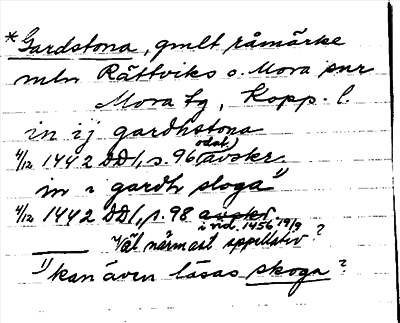 * Gardstona, gmlt råmärke
mln Rättviks o. Mora snr
Mora tg, Kopp. l.
in ij gardhstona
4/12 1442 DD 1, s. 96 (odat.) avskr.
in i gardh sloga 1)
4/12 1442 DD 1, s. 98 avskr.
i vid. 1456 19/9
Väl närmast appellativ?
1) kan även läsas skoga?